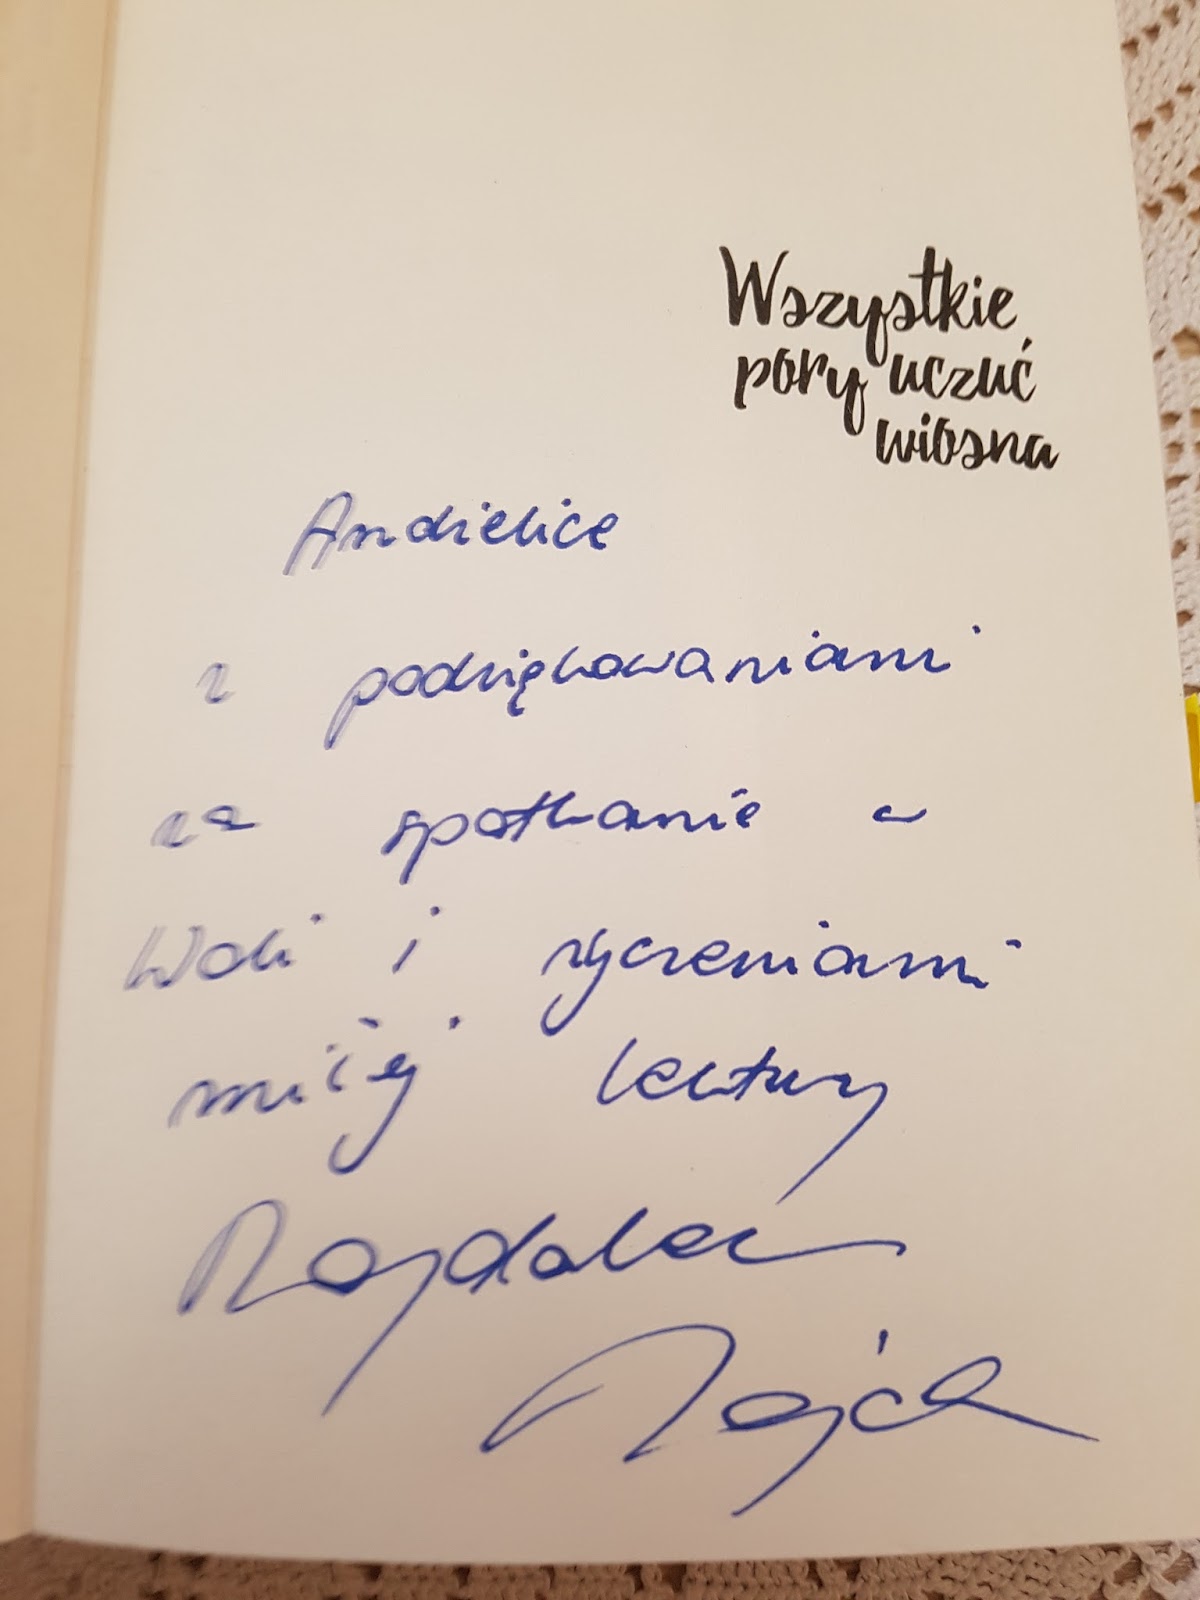 Wszystkie
pory uczuć
wiosna
Andżelice
z podziękowaniami
za spotkanie w
Woli i życzeniami
miłej lektury
Magdalena
Majcher